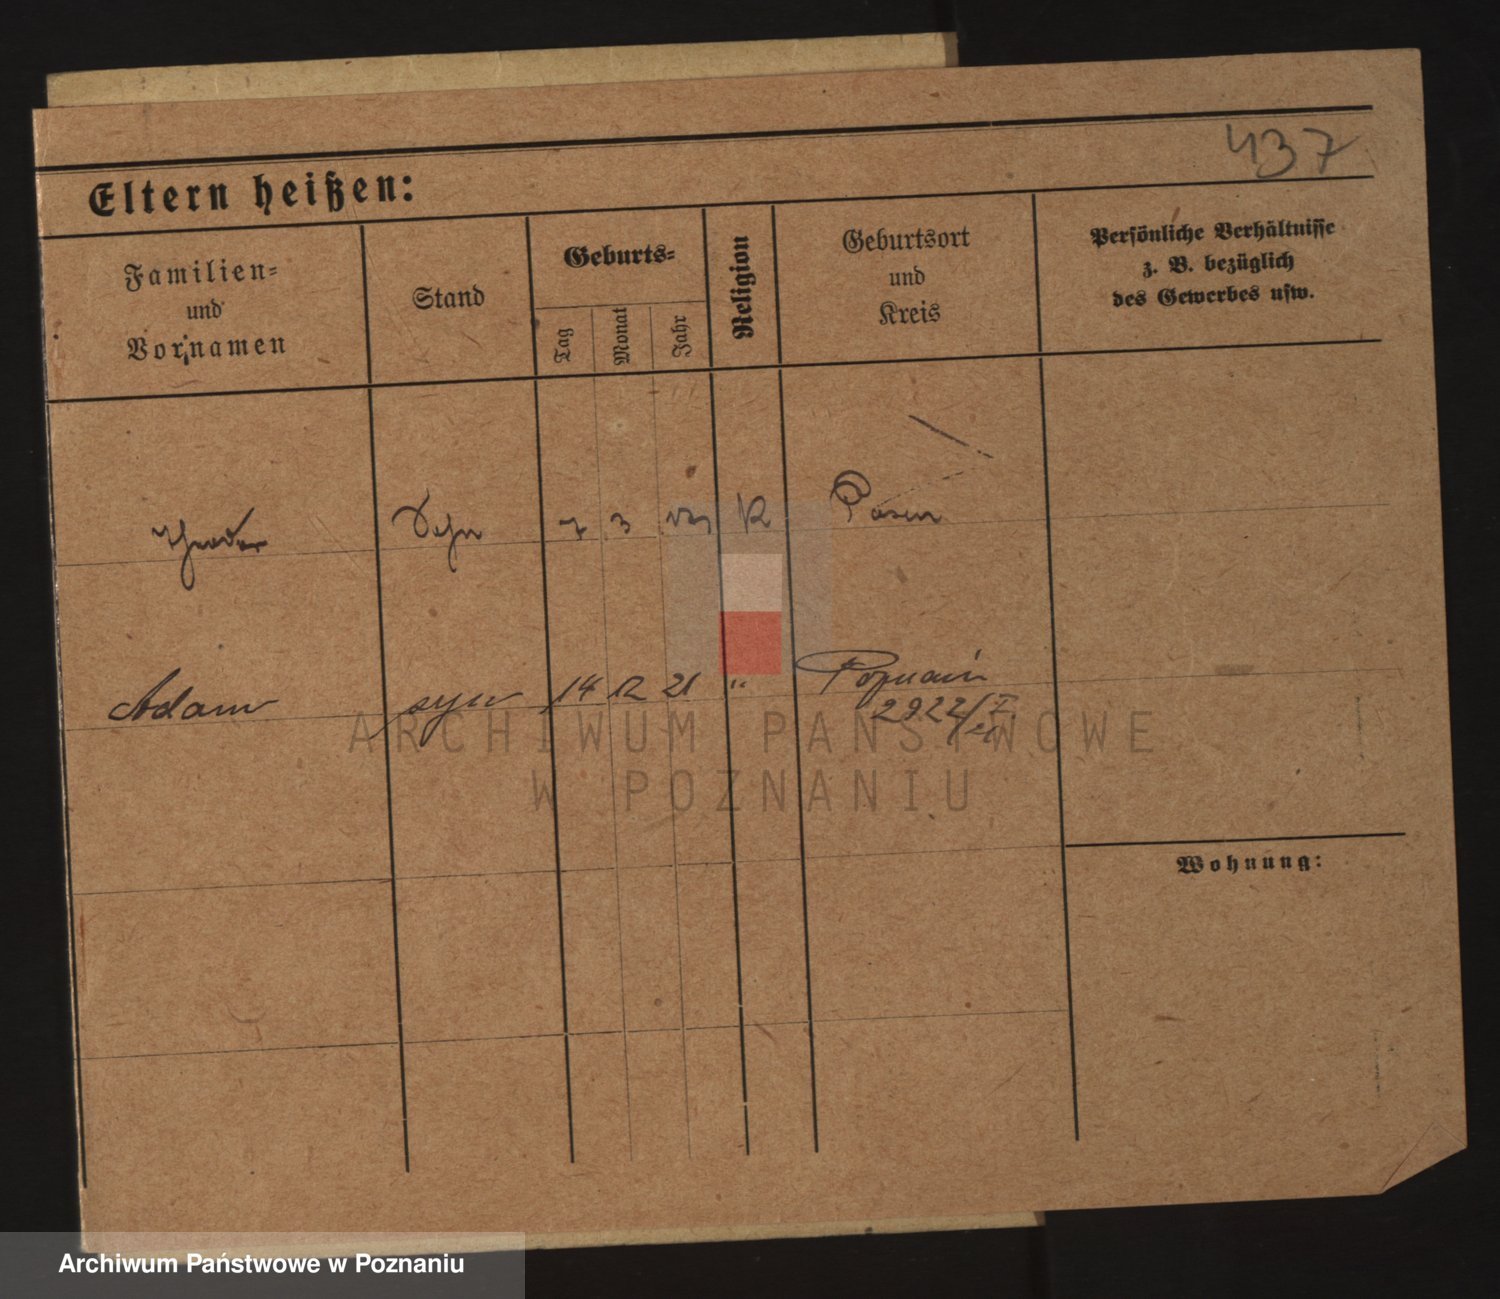 437
Eltern heißen:
Familien-
und
Vornamen
Stand
Geburts-
Tag
Monat
Jahr
Religion
Geburtsort
und
Kreis
Persönliche Verhältnisse
z. B. bezüglich
des Gewerbes usw.
Theodor Sohn 7 3 K Posen
Adam syn 14 12 21 " Poznań
2922/I
21
ARCHIWUM PAŃSTWOWE
W POZNANIU
Wohnung:
Archiwum Państwowe w Poznaniu